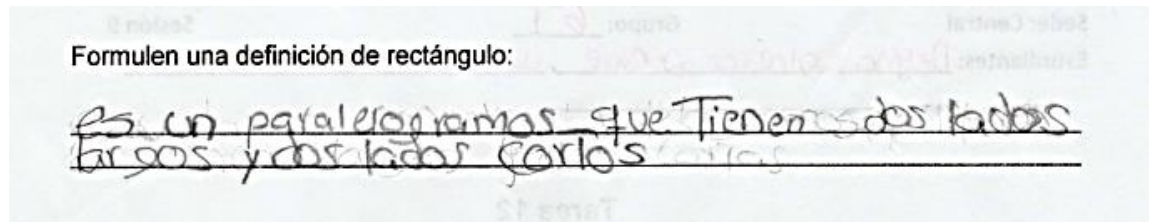 Formulen una definición de rectángulo:
es un paralelogramos que Tienen dos lados
largos y dos lados cortos